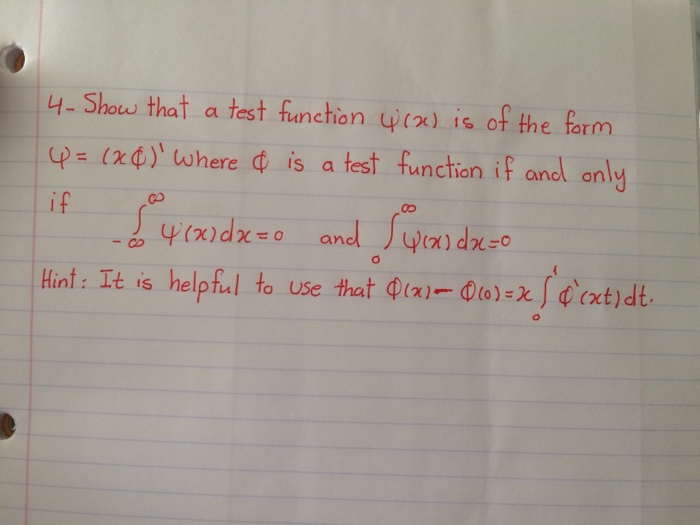 4- Show that a test function ψ(x) is of the form
φ = (xϕ)' where ϕ is a test function if and only
if ∫_{-∞}^{∞} ψ(x)dx=0 and ∫_{0}^{∞} ψ(x)dx=0
Hint: It is helpful to use that ϕ(x)-ϕ(0)=x∫_{0}^{1} ϕ'(xt)dt.